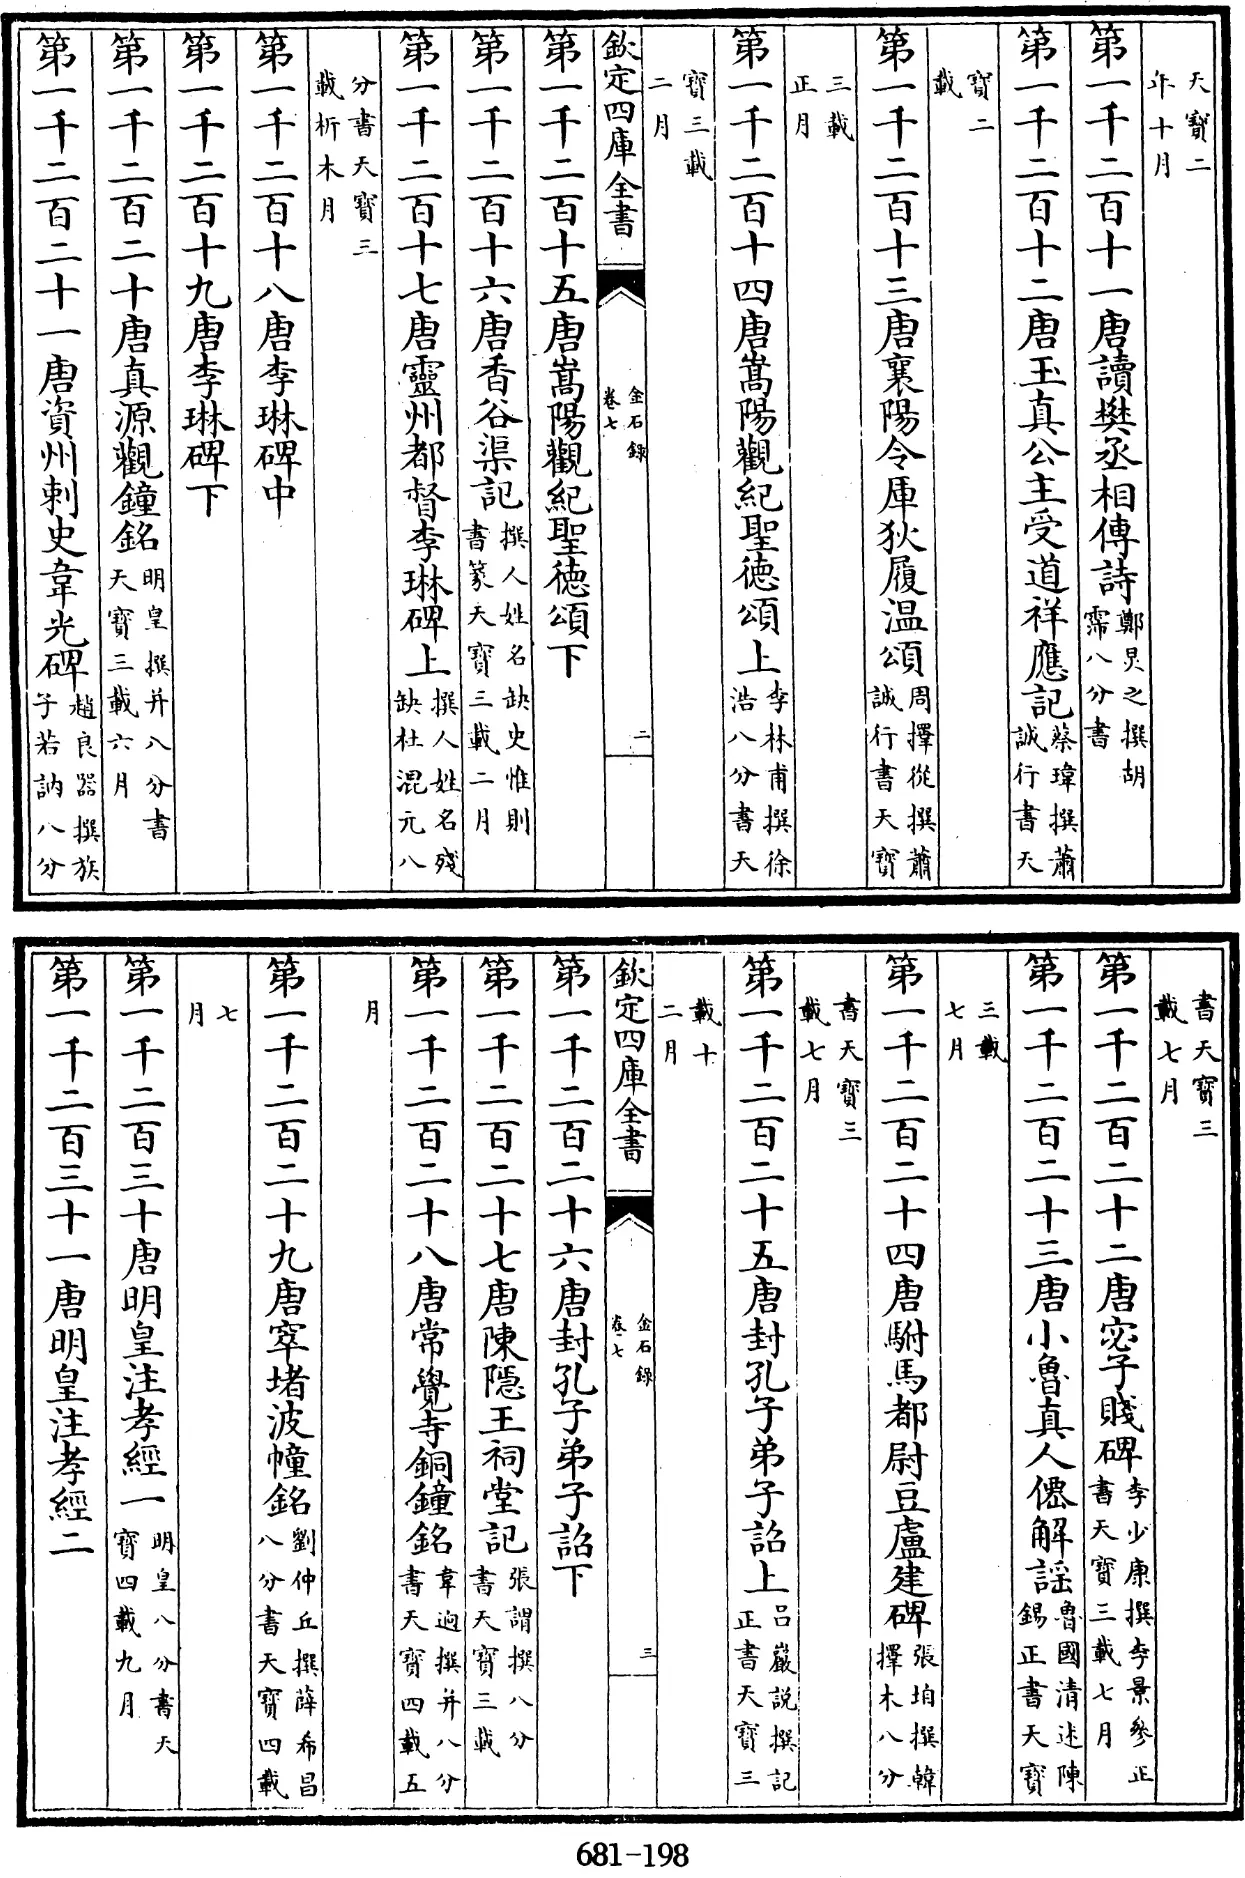 天寶二
年十月
第一千二百十一唐讀樊丞相傳詩鄭炅之撰胡霈八分書
第一千二百十二唐玉真公主受道祥應記蔡瑋撰蕭誠行書天
寶二
載
第一千二百十三唐襄陽令厙狄履温頌周擇從撰蕭誠行書天寶
三載
正月
第一千二百十四唐嵩陽觀紀聖德頌上李林甫撰徐浩八分書天
寶三載
二月
欽定四庫全書
金石錄
卷七
二
第一千二百十五唐嵩陽觀紀聖德頌下
第一千二百十六唐香谷渠記撰人姓名缺史惟則書篆天寶三載二月
第一千二百十七唐靈州都督李琳碑上撰人姓名殘缺杜混元八
分書天寶三
載析木月
第一千二百十八唐李琳碑中
第一千二百十九唐李琳碑下
第一千二百二十唐真源觀鐘銘明皇撰并八分書天寶三載六月
第一千二百二十一唐資州刺史韋光碑趙良器撰族子若訥八分
書天寶三
載七月
第一千二百二十二唐宓子賤碑李少康撰李景參正書天寶三載七月
第一千二百二十三唐小魯真人僊解謡魯國清述陳錫正書天寶
三載
七月
第一千二百二十四唐駙馬都尉豆盧建碑張垍撰韓擇木八分
書天寶三
載七月
第一千二百二十五唐封孔子弟子詔上吕巖說撰記正書天寶三
載十
二月
欽定四庫全書
金石錄
卷七
三
第一千二百二十六唐封孔子弟子詔下
第一千二百二十七唐陳隱王祠堂記張謂撰八分書天寶三載
第一千二百二十八唐常覺寺銅鐘銘韋逈撰并八分書天寶四載五
月
第一千二百二十九唐窣堵波幢銘劉仲丘撰薛希昌八分書天寶四載
七
月
第一千二百三十唐明皇注孝經一明皇八分書天寶四載九月
第一千二百三十一唐明皇注孝經二
681-198